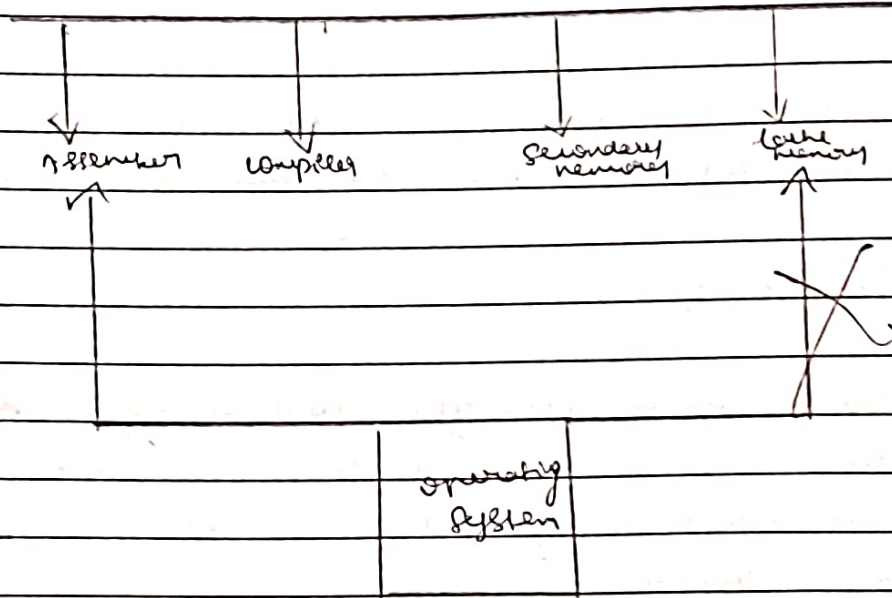 Assembler compiler Secondary cache
memory memory
operating
system